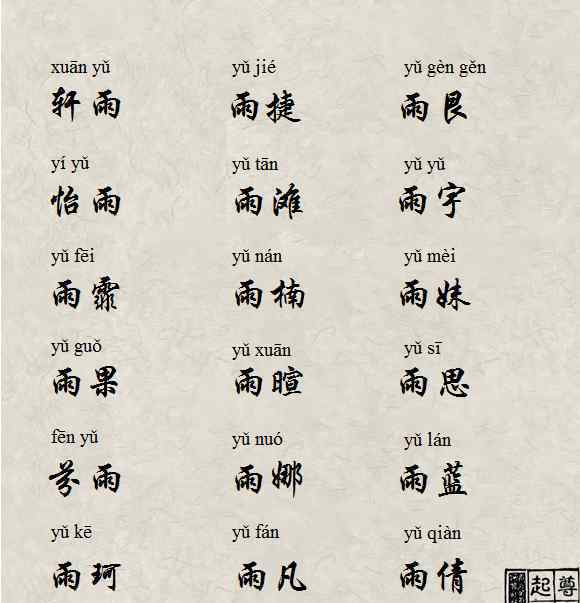 xuān yǔ yǔ jié yǔ gèn gěn
轩雨 雨捷 雨艮
yí yǔ yǔ tān yǔ yǔ
怡雨 雨滩 雨宇
yǔ fēi yǔ nán yǔ mèi
雨霏 雨楠 雨妹
yǔ guǒ yǔ xuān yǔ sī
雨果 雨暄 雨思
fēn yǔ yǔ nuó yǔ lán
芬雨 雨娜 雨蓝
yǔ kē yǔ fán yǔ qiàn
雨珂 雨凡 雨倩
起尊